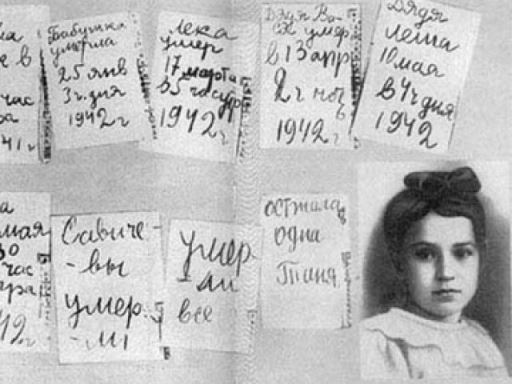 час
41 г
Бабушка
умерла
25 янв
3 ч. дня
1942 г
Лека
умер
17 марта
в 5 час утр
1942 г
Дядя Ва-
ся умер
в 13 апр
2 ч ноч
1942 г
Дядя
Леша
10 мая
в 4 ч дня
1942
мая
30
час
Савиче-
-вы
умер-
-ли
умер
-ли
все
осталась
одна
Таня